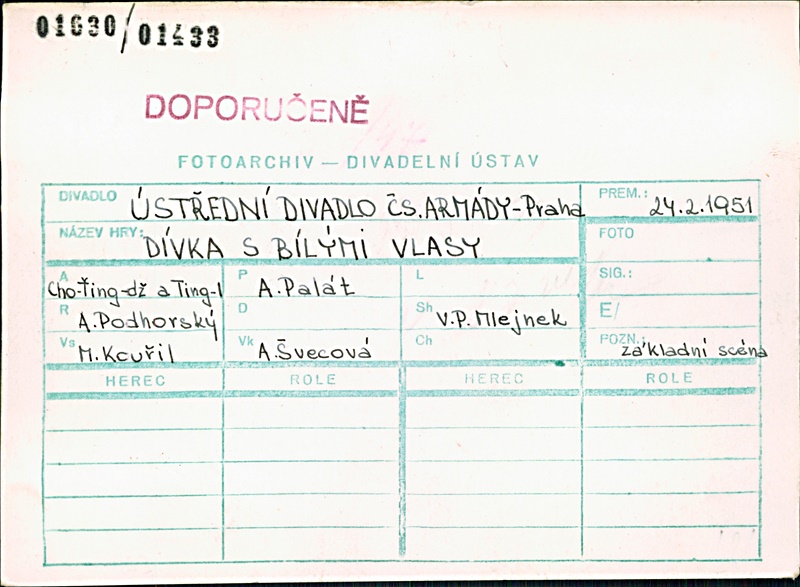 01630/01433
DOPORUČENĚ
FOTOARCHIV — DIVADELNÍ ÚSTAV
DIVADLO ÚSTŘEDNÍ DIVADLO ČS. ARMÁDY-Praha PREM.: 24.2.1951
NÁZEV HRY: DÍVKA S BÍLÝMI VLASY FOTO
A Cho-Ťing-dž a Ting-I P A. Palát L SIG.:
R A. Podhorský D Sh V.P. Mlejnek E/
Vs M. Kouřil Vk A. Švecová Ch POZN.: základní scéna
HEREC ROLE HEREC ROLE